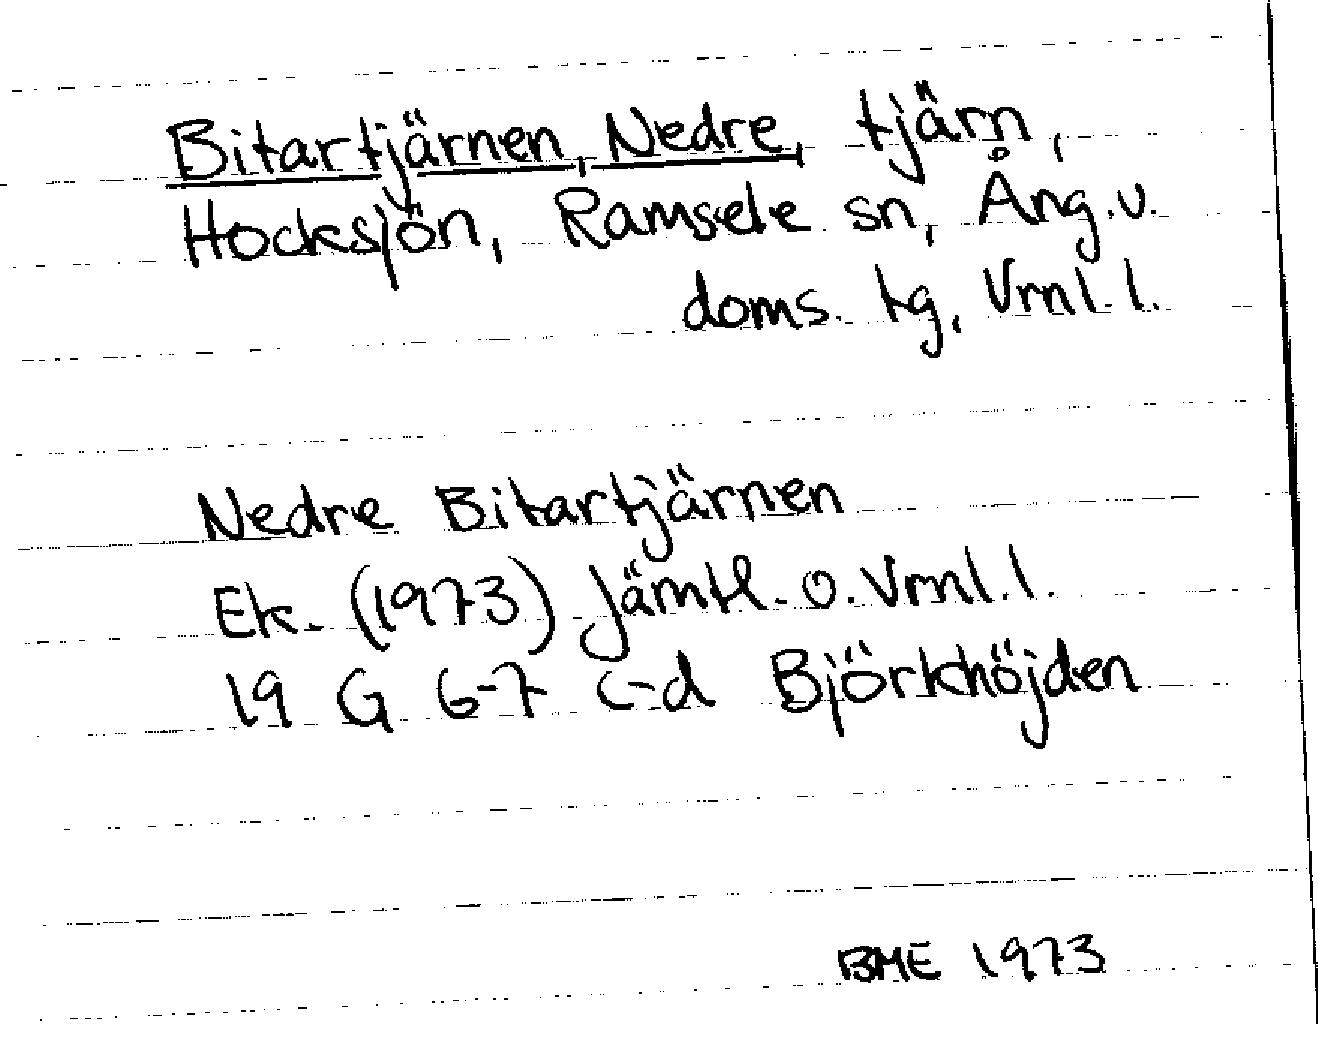 Bitartjärnen, Nedre, tjärn,
Hocksjön, Ramsele sn, Ång.v.
doms. tg, Vrnl. l.
Nedre Bitartjärnen
Ek. (1973) Jämtl. o. Vrnl. l.
19 G 6-7 c-d Björkhöjden
BME 1973